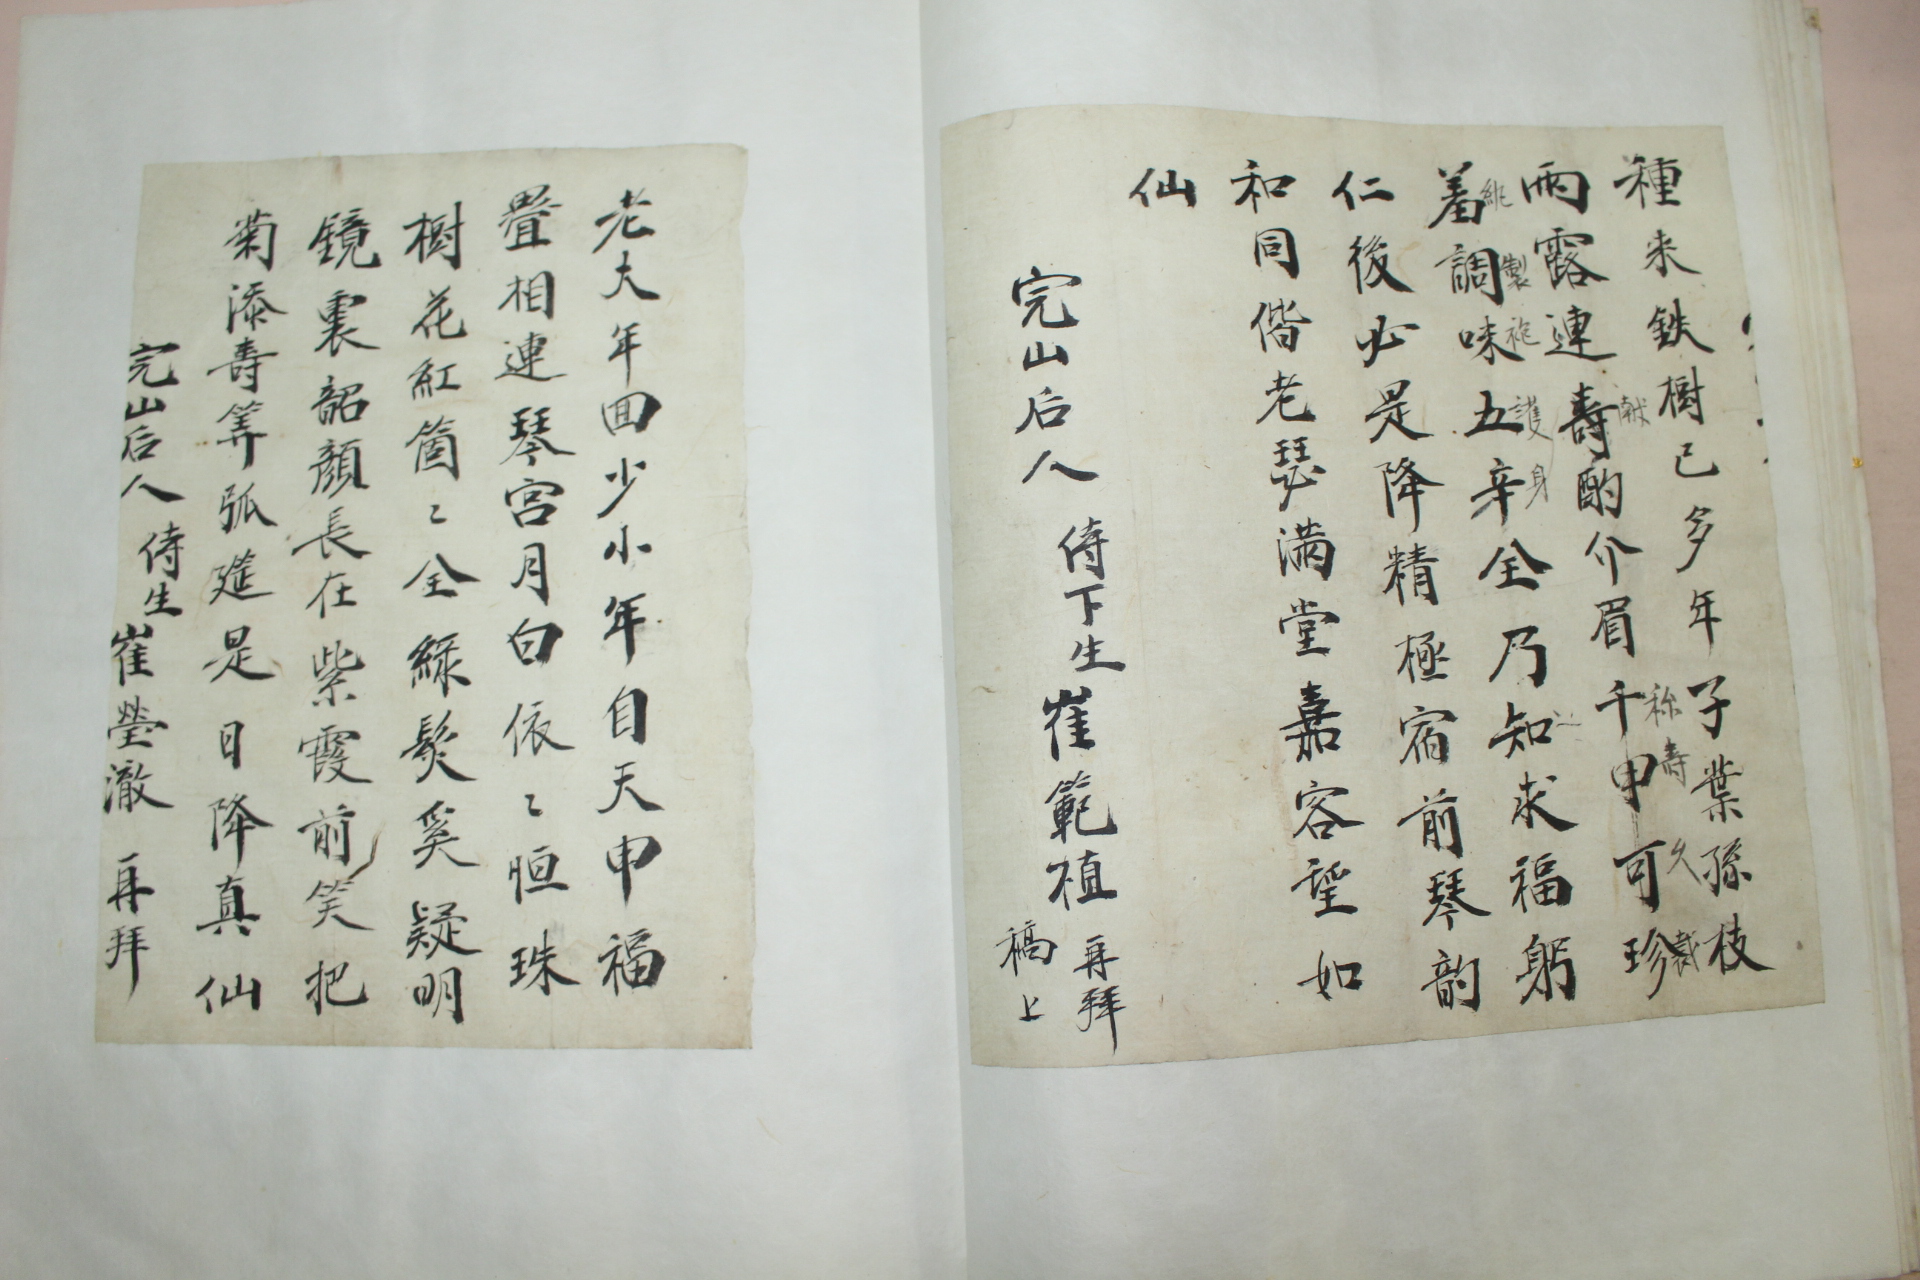 種来鉄樹已多年子葉孫枝
雨露連壽酌介眉千甲可珍
献
称壽久裁
羞調味五辛全乃知求福躬
製袍護身
仁後必是降精極宿前琴韵
和同偕老瑟滿堂嘉容望如
仙
完山后人 侍下生 崔範植 再拜
稿上
老大年回少小年自天申福
疊相連琴宮月白依〻恒珠
樹花紅箇〻全綠髮奚疑明
鏡裏韶顔長在紫霞前笑把
菊添壽筭弧筵是日降真仙
完山后人 侍生 崔瑩澈 再拜